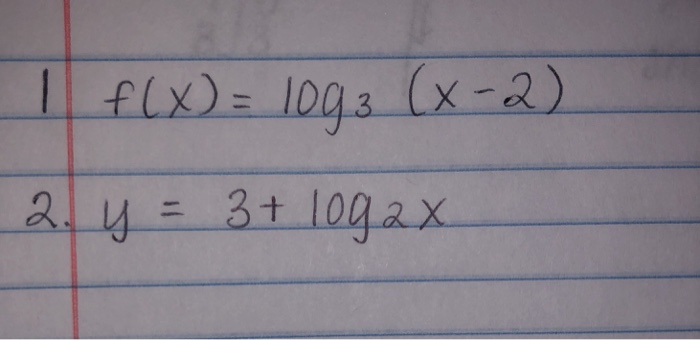 1 f(x) = log₃ (x-2)
2. y = 3 + log₂x